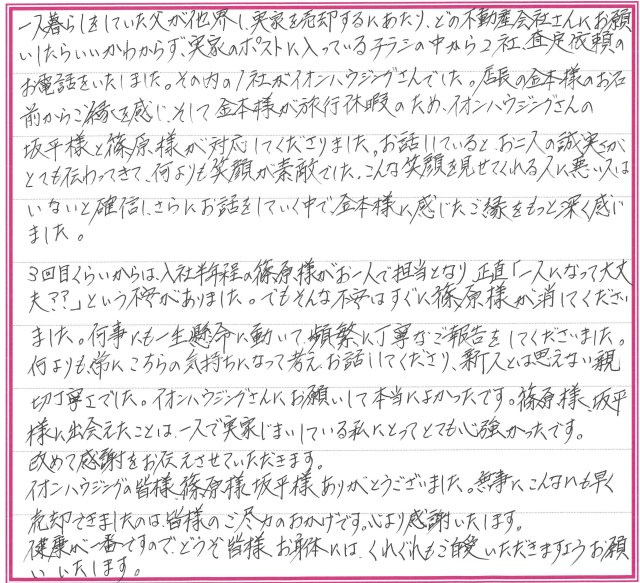 一人暮らしをしていた父が他界し、実家を売却するにあたり、どの不動産会社さんにお願
いしたらいいかわからず、実家のポストに入っているチラシの中から2社、査定依頼の
お電話をいたしました。その内の1社がイオンハウジングさんでした。店長の金本様のお名
前からご縁を感じ、そして金本様が旅行休暇のため、イオンハウジングさんの
坂平様と篠原様が対応してくださりました。お話ししていると、お二人の誠実さが
とても伝わってきて、何よりも笑顔が素敵でした。こんな笑顔を見せてくれる人に悪い人は
いないと確信し、さらにお話をしていく中で金本様に感じたご縁をもっと深く感じ
ました。
3回目くらいからは、入社半年程の篠原様がお一人で担当となり、正直「一人になって大丈
夫??」という不安がありました。でもそんな不安はすぐに篠原様が消してください
ました。何事にも一生懸命に動いて、頻繁に丁寧なご報告をしてくださいました。
何よりも、常にこちらの気持ちになって考え、お話ししてくださり、新人とは思えない親
切丁寧さでした。イオンハウジングさんにお願いして本当によかったです。篠原様、坂平
様に出会えたことは、一人で実家じまいしている私にとってとても心強かったです。
改めて感謝をお伝えさせていただきます。
イオンハウジングの皆様、篠原様、坂平様、ありがとうございました。無事にこんなにも早く
売却できましたのは、皆様のご尽力のおかげです。心より感謝いたします。
健康が一番ですので、どうぞ皆様、お身体には、くれぐれもご自愛いただきますようお願
いいたします。